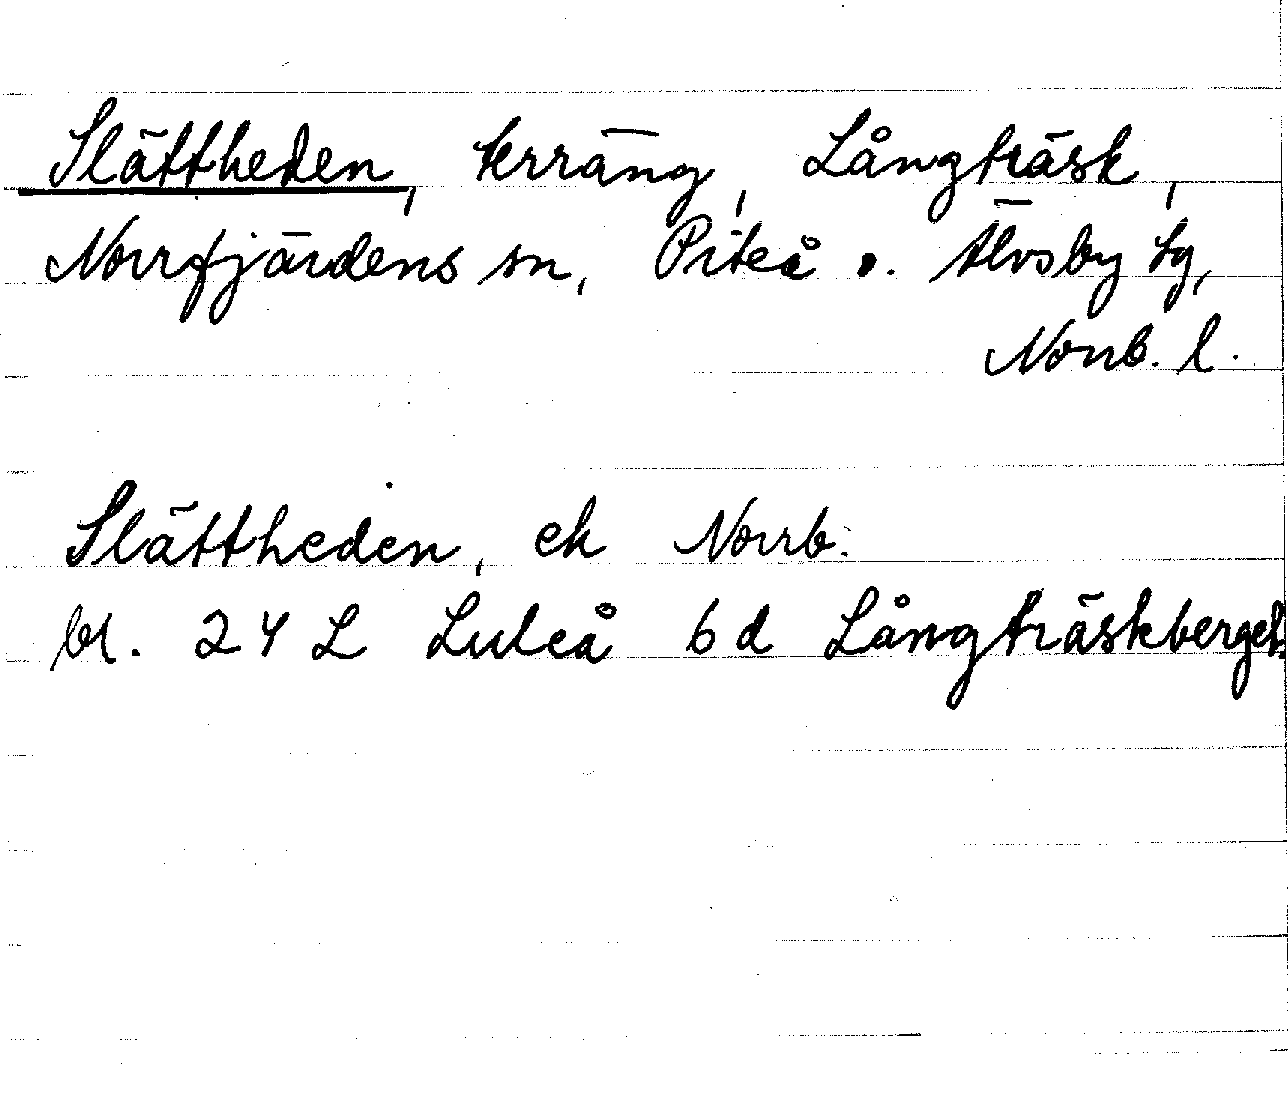 Slättheden, terräng, Långträsk,
Norrfjärdens sn, Piteå o. Älvsby tg,
Norrb. l.
Slättheden, ek Norrb.
bl. 24 L Luleå 6d Långträskberget.